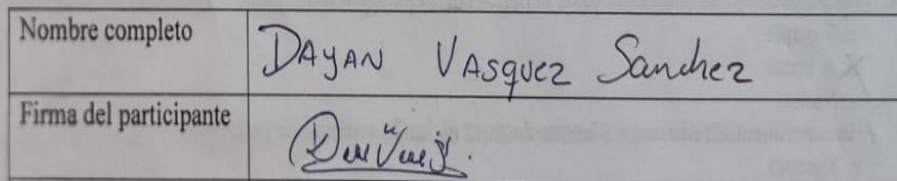 Nombre completo
DAYAN VASquez Sanchez
Firma del participante